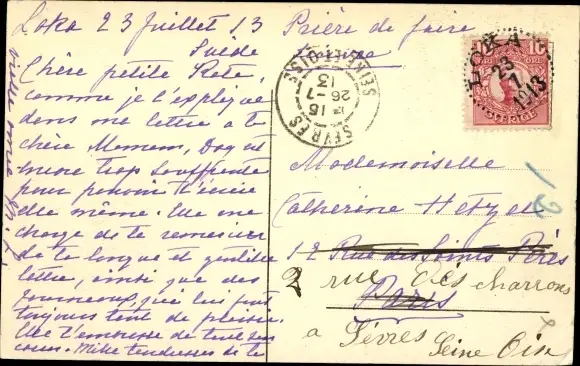 Loka 23 Juillet 13
Suède
Chère petite Kete,
comme je l'explique
dans une lettre a ta
chère Maman, Dag est
encore trop souffrante
pour pouvoir t'écrire
elle même. Elle me
charge de te remercier
de ta longue et gentille
lettre, ainsi que des
journeaux, que lui font
toujours tant de plaisir.
Elle t'embrasse de tout son
cœur. Mille tendresses de ta
vieille
Prière de faire
suivre
Mademoiselle
Catherine Hetzel
12 Rue des Saints Pères
Paris
2 rue des charrons
a Sèvres
Seine Oise
SÈVRES
SEINE-ET-OISE
15
26-7
13
LOKA
23
7
1913
10
SVERIGE
12